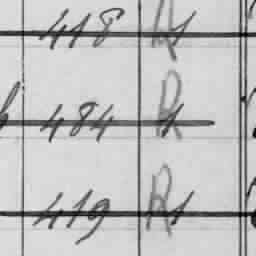 418 R 1
484 R 1
419 R 1